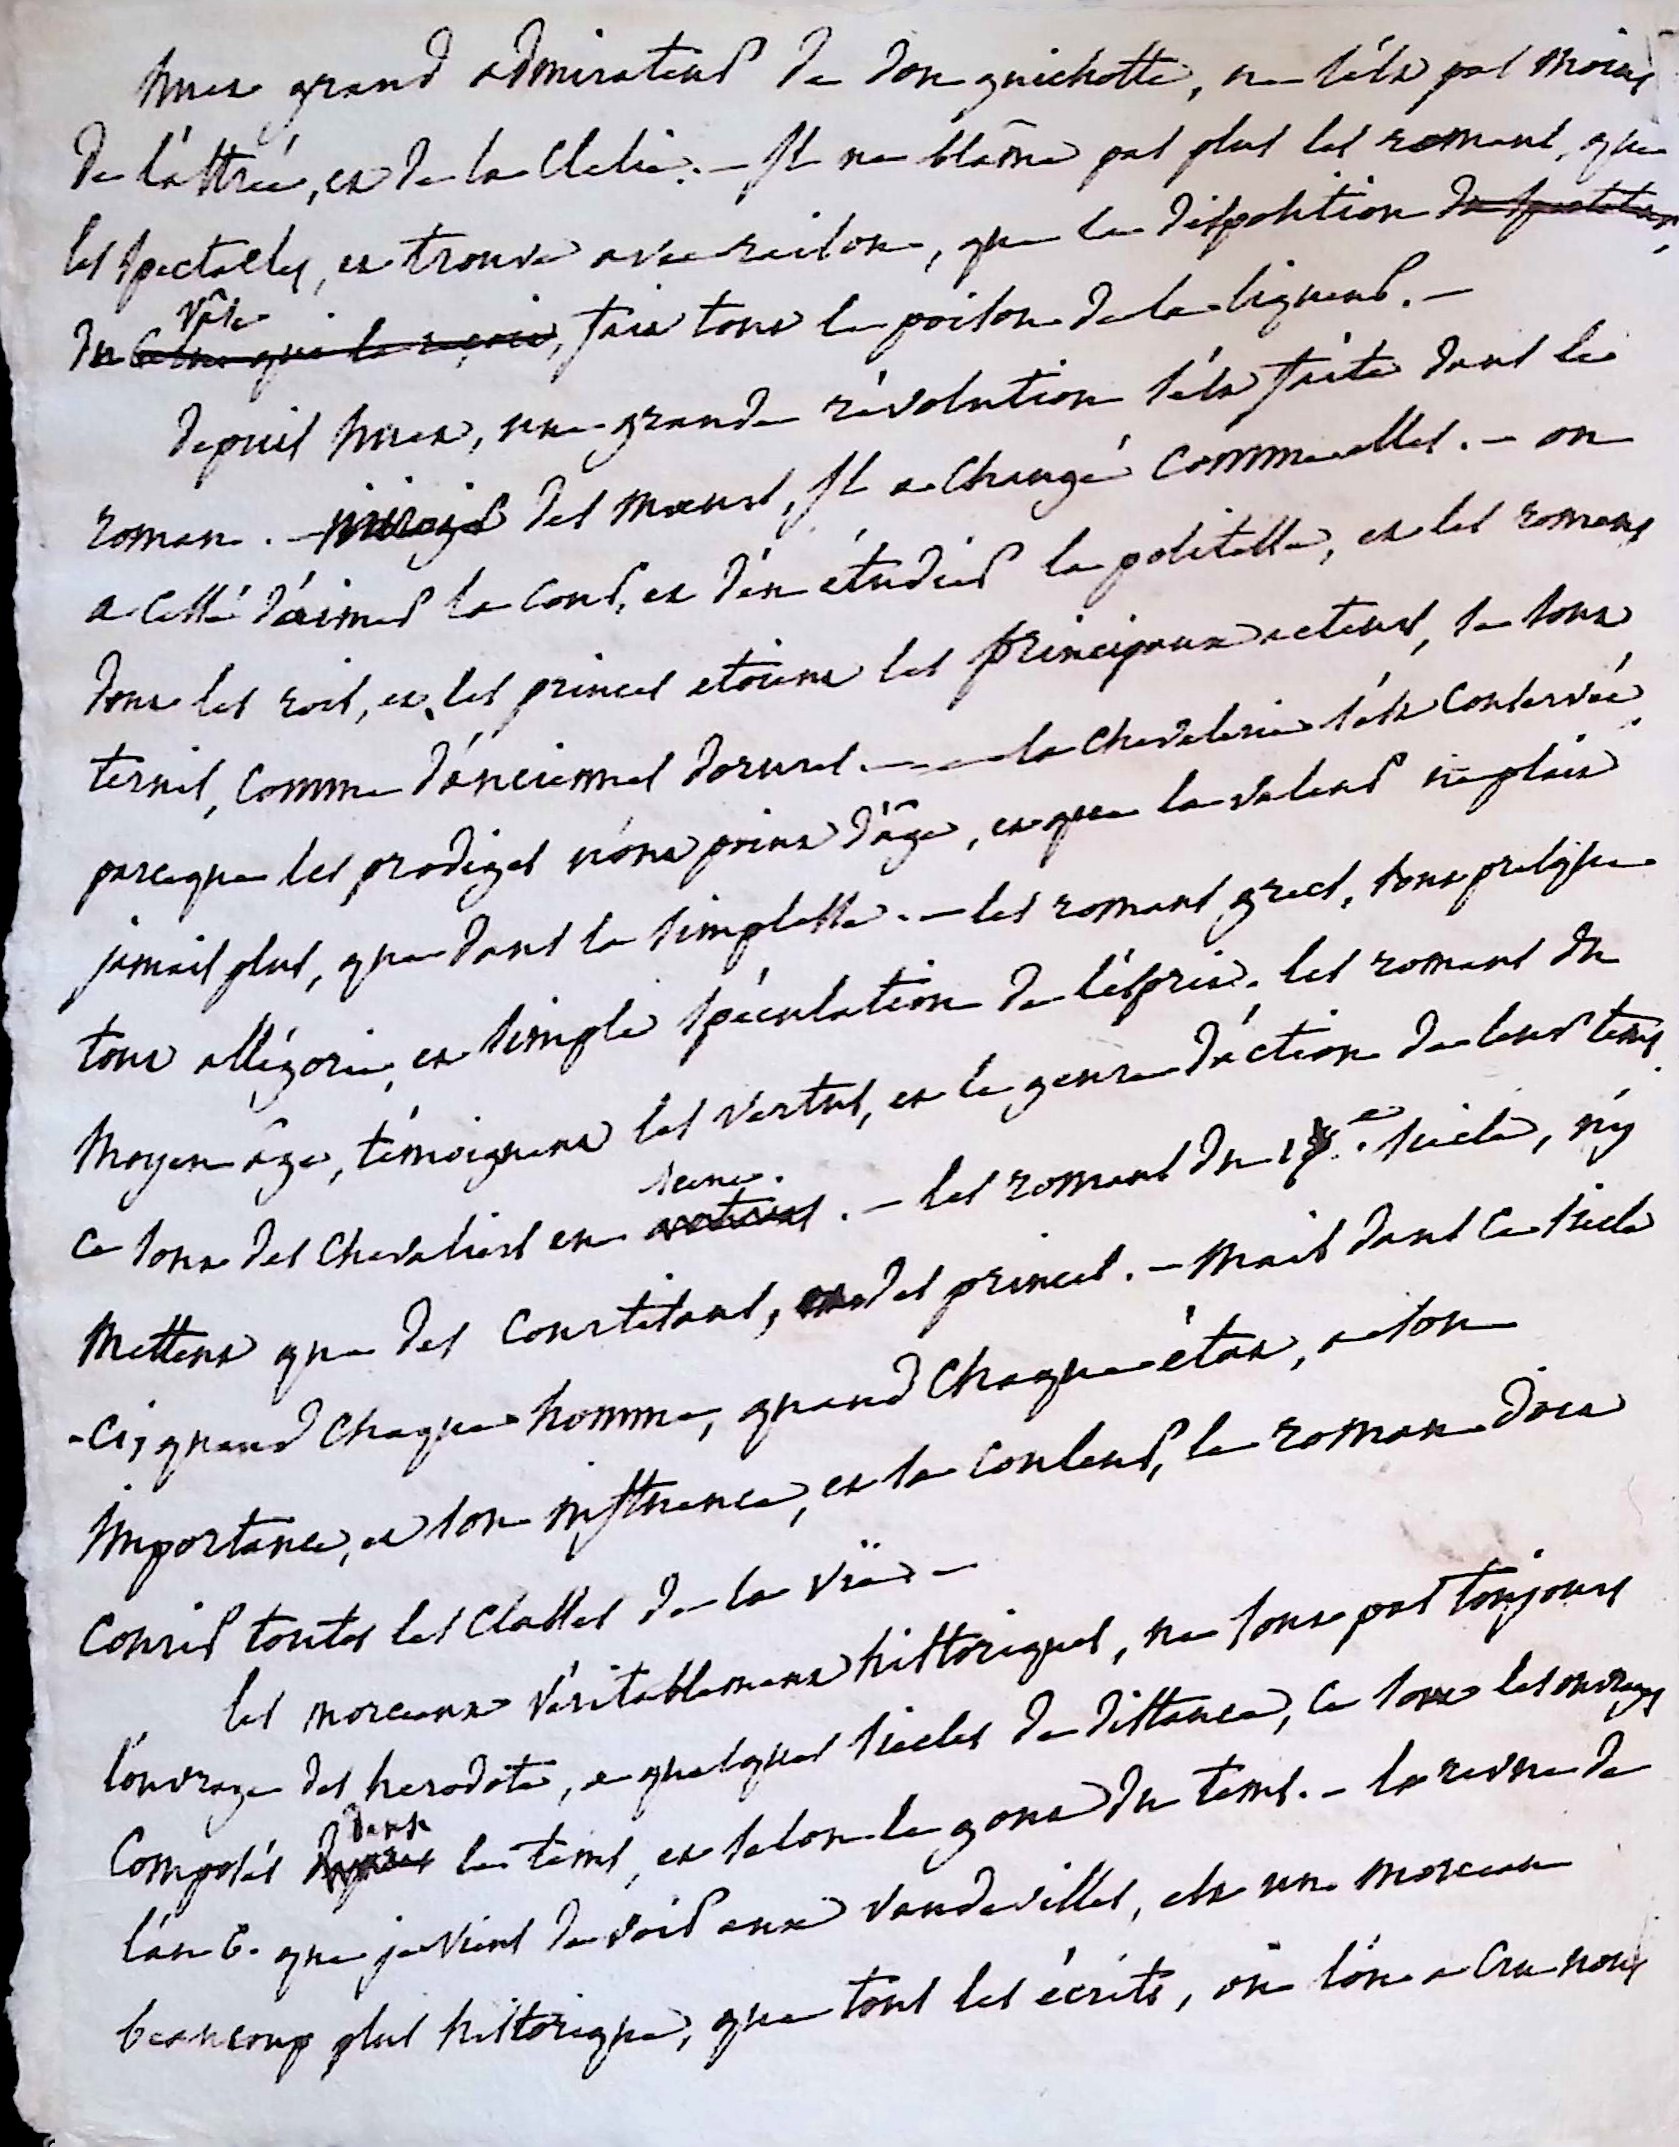 huet grand admirateur de don guichotte, ne l'est pas moins
de l'astrée, et de la Clelie. – Il ne blâme pas plus les romans, que
les spectacles, et trouve avec raison, que la disposition du spectateur,
du vase ce lui qui le reçoit, fait tout le poison de la liqueur. –
depuis huet, une grande révolution s'est faite dans le
roman. – miroir des mœurs, Il a changé comme elles. – on
a cessé d'aimer la cour, et d'en étudier la politesse, et les romans
dont les rois, et les princes etoient les principaux acteurs, se sont
ternis, comme d'anciennes dorures. – la chevalerie s'est conservée,
parceque les prodiges n'ont point d'âge, et que la valeur ne plait
jamais plus, que dans la simplesse. – les romans grecs, sont presque
tous allégorie, et simple spéculation de l'esprit. les romans du
moyen âge, témoignent les vertus, et le genre d'action de leur tems.
ce sont des chevaliers en scene. acteurs. – les romans du 17e. siecle, n'y
mettent que des courtisans, et des princes. – mais dans ce siecle
-ci, quand chaque homme, quand chaque état, a son
importance, et son influence, et sa couleur, le roman doit
courir toutes les classes de la vie. –
les morceaux véritablement historiques, ne sont pas toujours
l'ouvrage des herodote, a quelques siecles de distance, ce sont les ouvrages
composés dans le tems, et selon le gout du tems. – la revue de
l'an 6. que je viens de voir aux vaudevilles, est un morceau
beaucoup plus historique, que tous les écrits, où l'on a cru nous